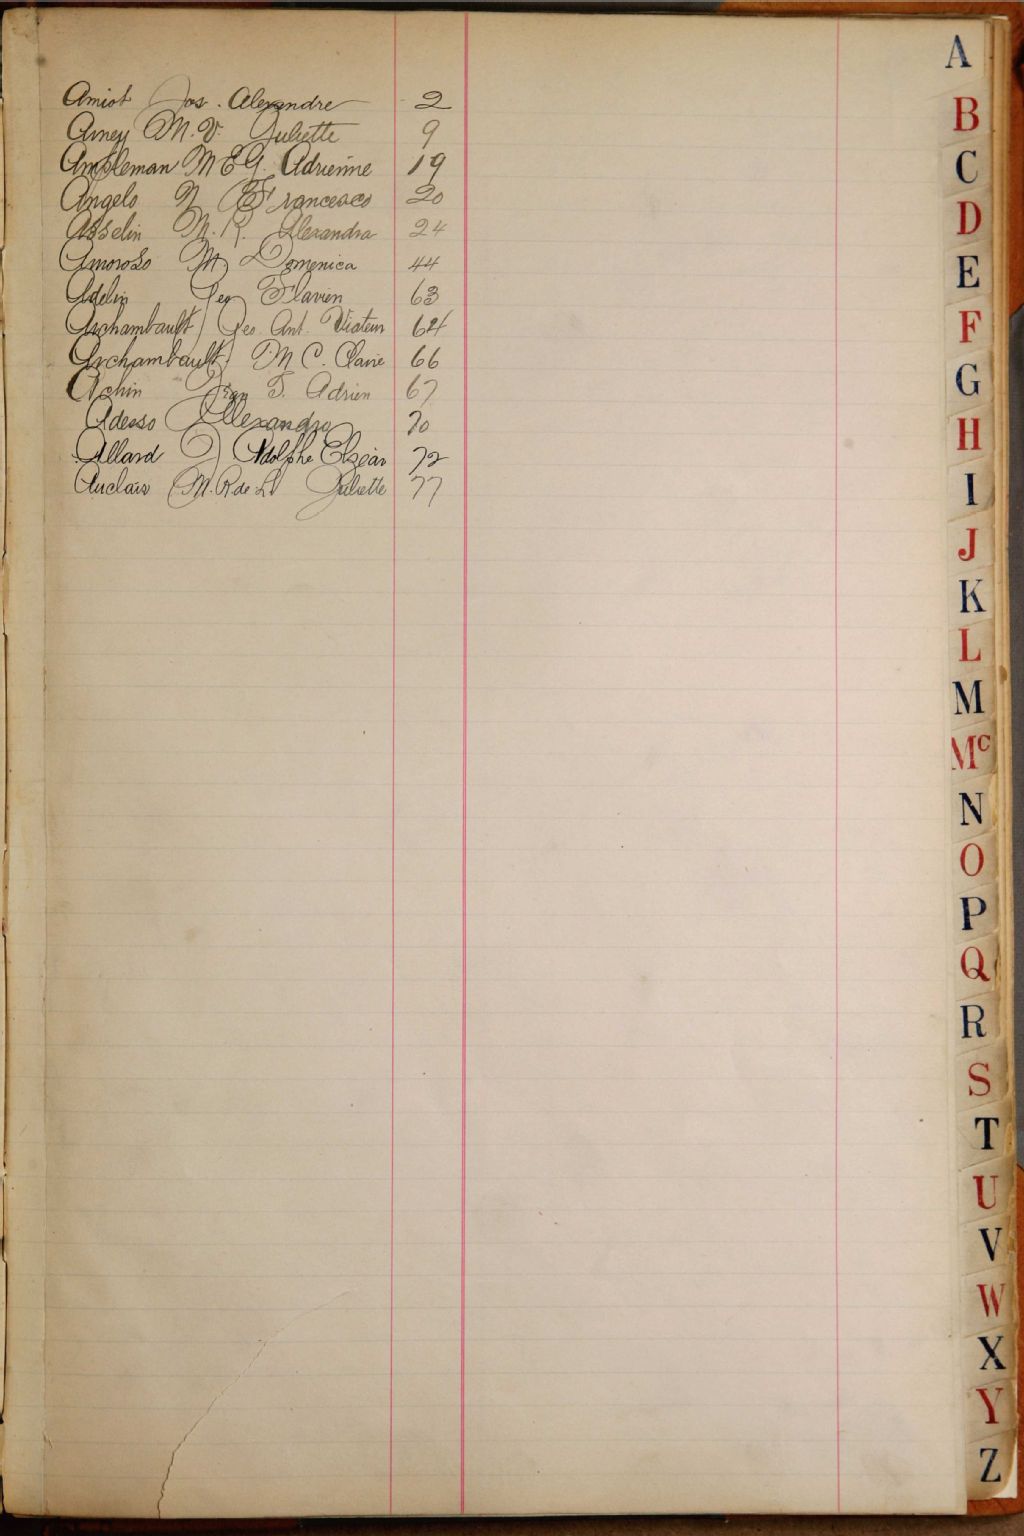 Amiot Jos. Alexandre 2
Amey M. V. Juliette 9
Ampleman M E G. Adrienne 19
Angelo N Francesco 20
Asselin M. R. Alexandra 24
Amoroso M Domenica 44
Adelin Geo Flavien 63
Archambault Geo. Ant. Viateur 64
Archambault M C. Claire 66
Achin T. Adrien 67
Adesso Alexandro 70
Allard J Adolphe Elzéar 72
Auclair M. R de L Juliette 77
A
B
C
D
E
F
G
H
I
J
K
L
M
Mc
N
O
P
Q
R
S
T
U
V
W
X
Y
Z